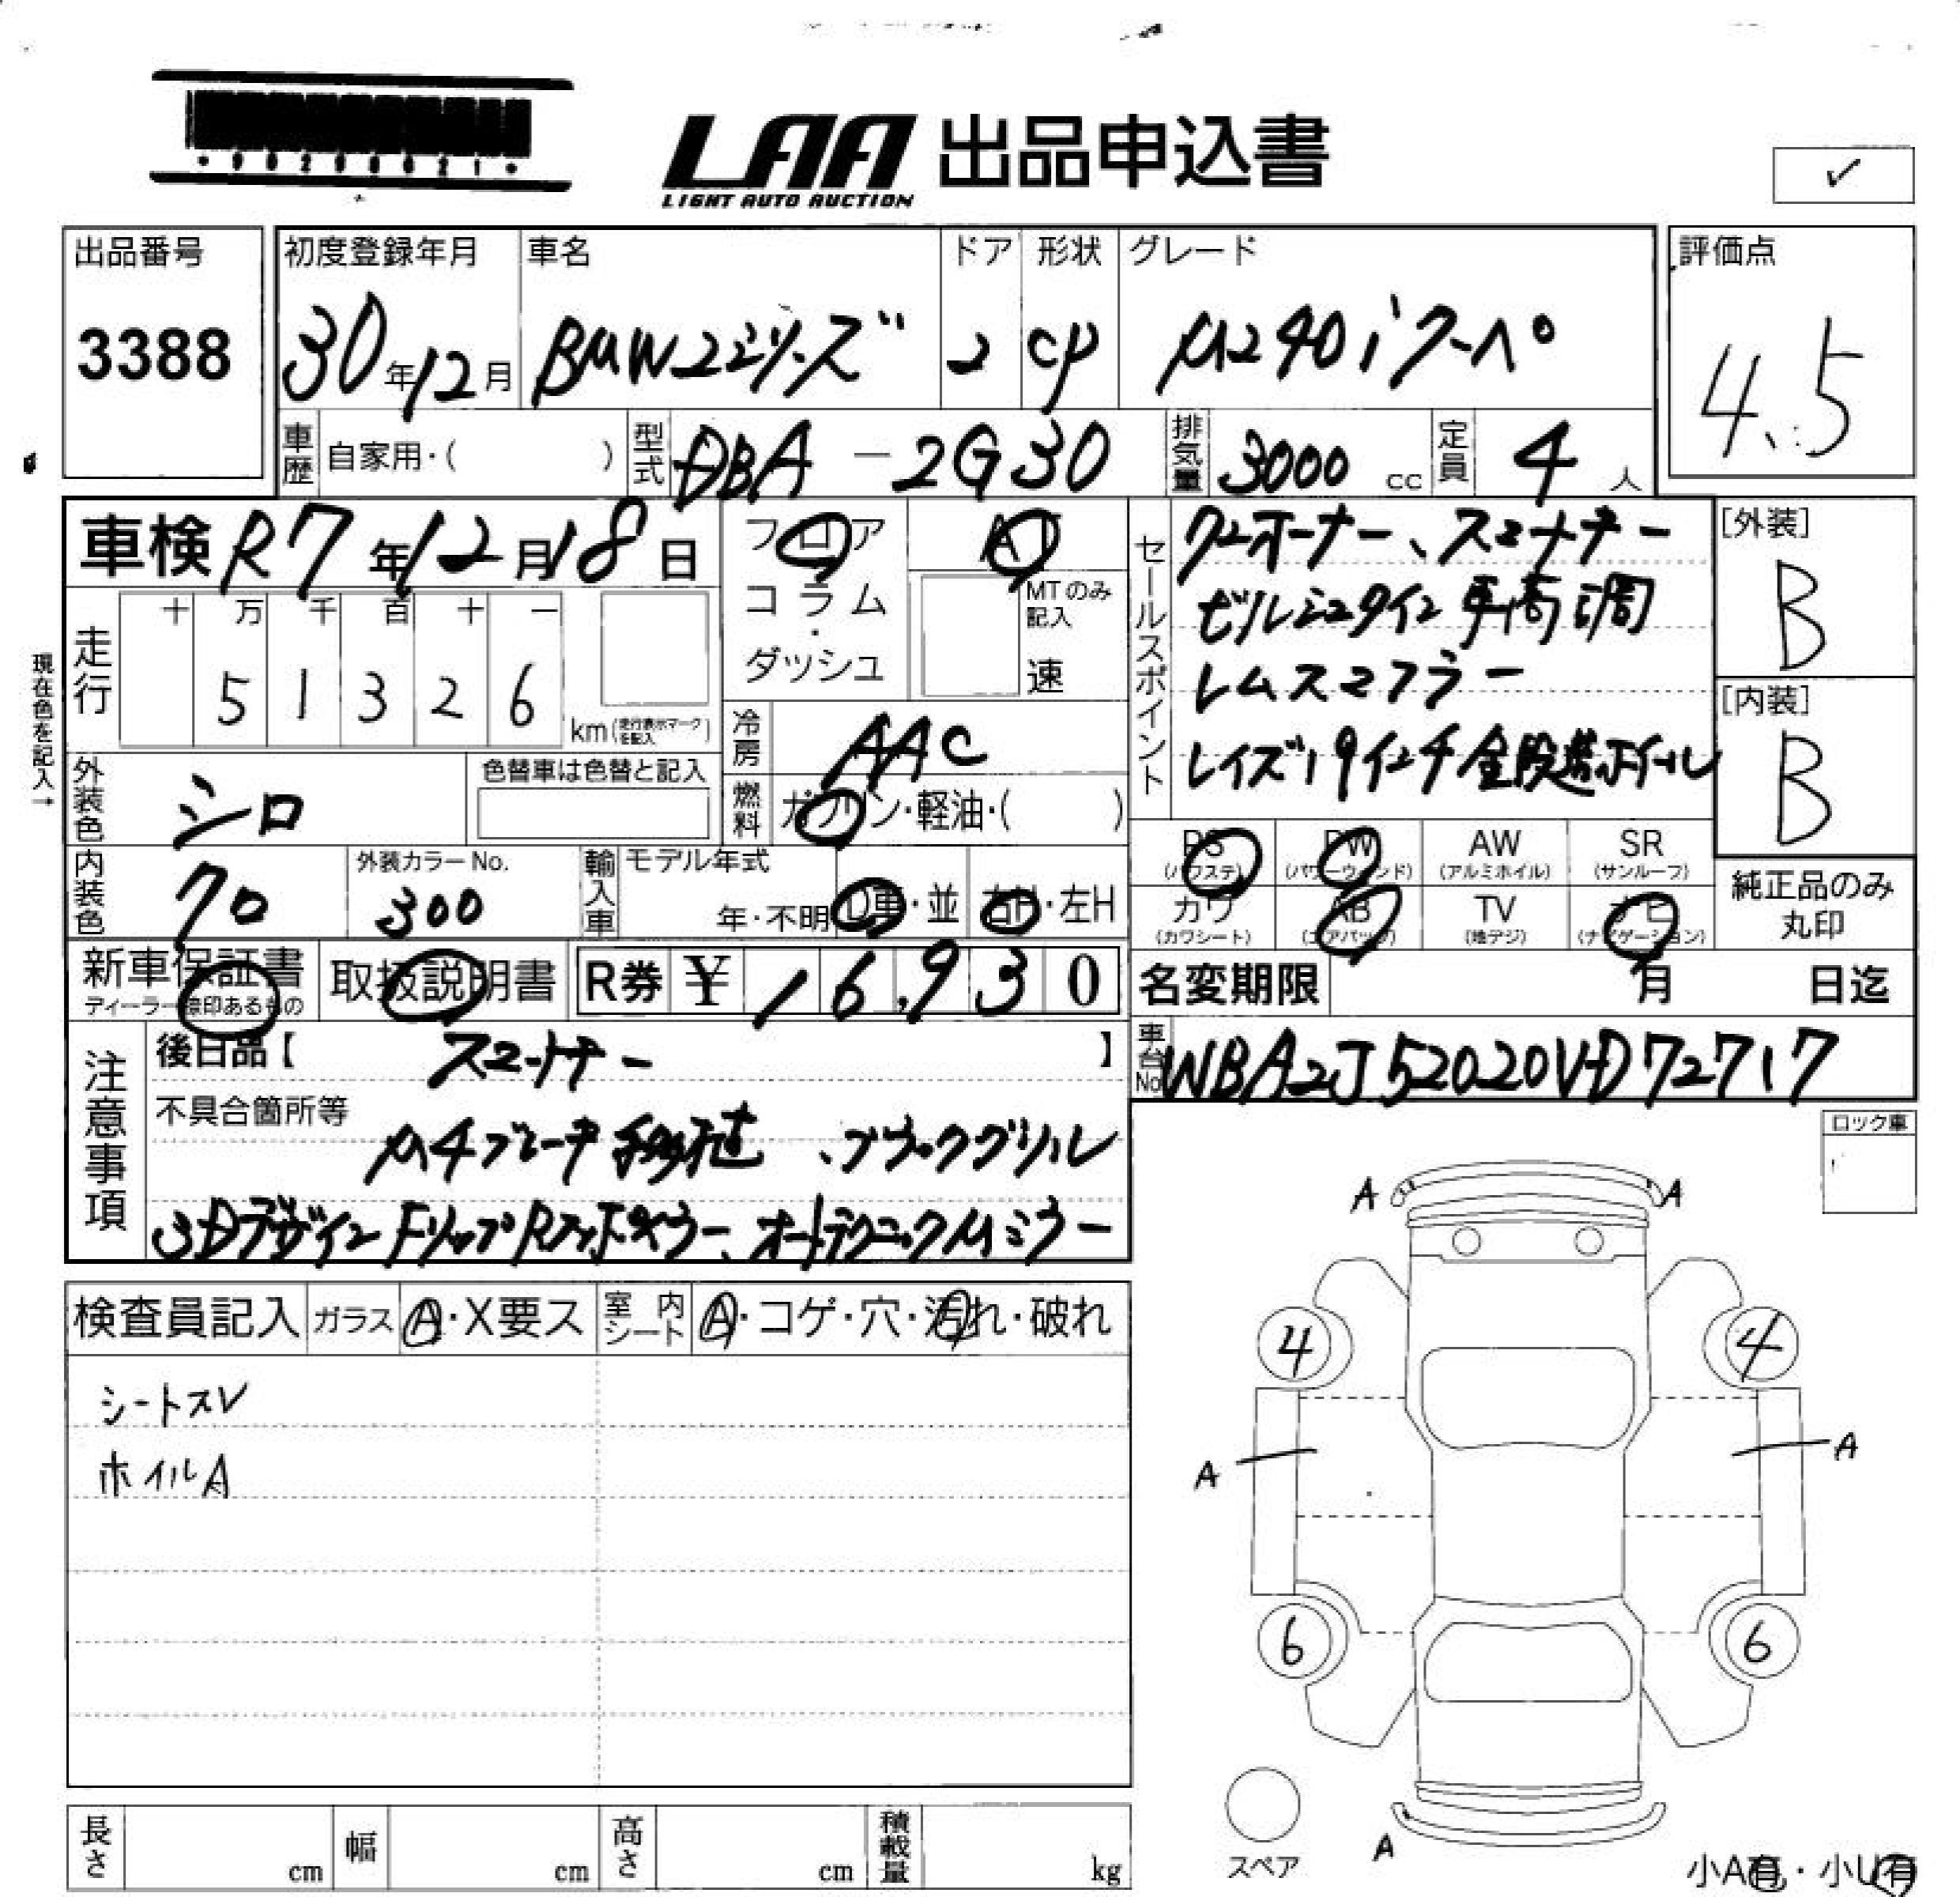 LAA 出品申込書
LIGHT AUTO AUCTION
✓
出品番号
3388
初度登録年月
30年12月
車名
BMW2シリーズ
ドア
2
形状
CP
グレード
M240iクーペ
評価点
4.5
車歴 自家用・( )
型式 DBA-2G30
排気量 3000 cc
定員 4 人
車検 R7年12月18日
フロア
コラム
・
ダッシュ
AT
MTのみ記入
速
セールスポイント
ワンオーナー、スマートキー
ビルシュタイン車高調
レムスマフラー
レイズ19インチ鍛造ホイル
[外装]
B
[内装]
B
現在色を記入→
走行
十 万 千 百 十 一
5 1 3 2 6
km(走行表示マークを記入)
冷房 AAC
燃料 ガソリン・軽油・( )
外装色 シロ
色替車は色替と記入
内装色 クロ
外装カラーNo.
300
輸入車
モデル年式
年・不明
D車・並
右H・左H
PS
(パワステ)
PW
(パワーウィンド)
AW
(アルミホイル)
SR
(サンルーフ)
カワ
(カワシート)
AB
(エアバッグ)
TV
(地デジ)
ナビ
(ナビゲーション)
純正品のみ
丸印
新車保証書
ディーラー捺印あるもの
取扱説明書
R券 ¥ 16,930
名変期限 月 日迄
注意事項
後日品【 スマートキー 】
不具合箇所等
M4ブレーキ移植、ブラックグリル
3Dデザイン Fリップ R
オートテクニックMミラー
車台No WBA2J52020VD72717
ロック車
検査員記入
ガラス A・X要ス
室内シート A・コゲ・穴・汚れ・破れ
シートスレ
ホイルA
A A
4 4
A A
6 6
スペア
A
小A有・小U有
長さ cm
幅 cm
高さ cm
積載量 kg